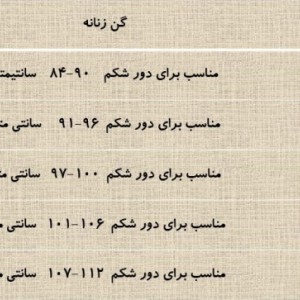 گن زنانه
مناسب برای دور شکم ۹۰-۸۴ سانتیمت
مناسب برای دور شکم ۹۶-۹۱ سانتی مت
مناسب برای دور شکم ۱۰۰-۹۷ سانتی مت
مناسب برای دور شکم ۱۰۶-۱۰۱ سانتی م
مناسب برای دور شکم ۱۱۲-۱۰۷ سانتی م